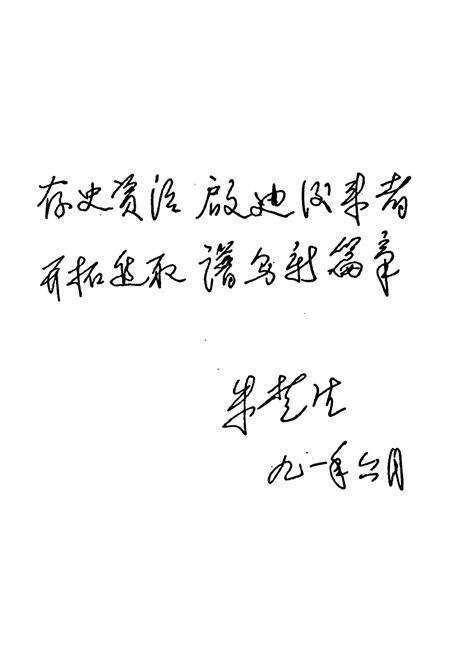 存史资治 启迪后来者
开拓进取 谱写新篇章
朱楚生
九一年六月